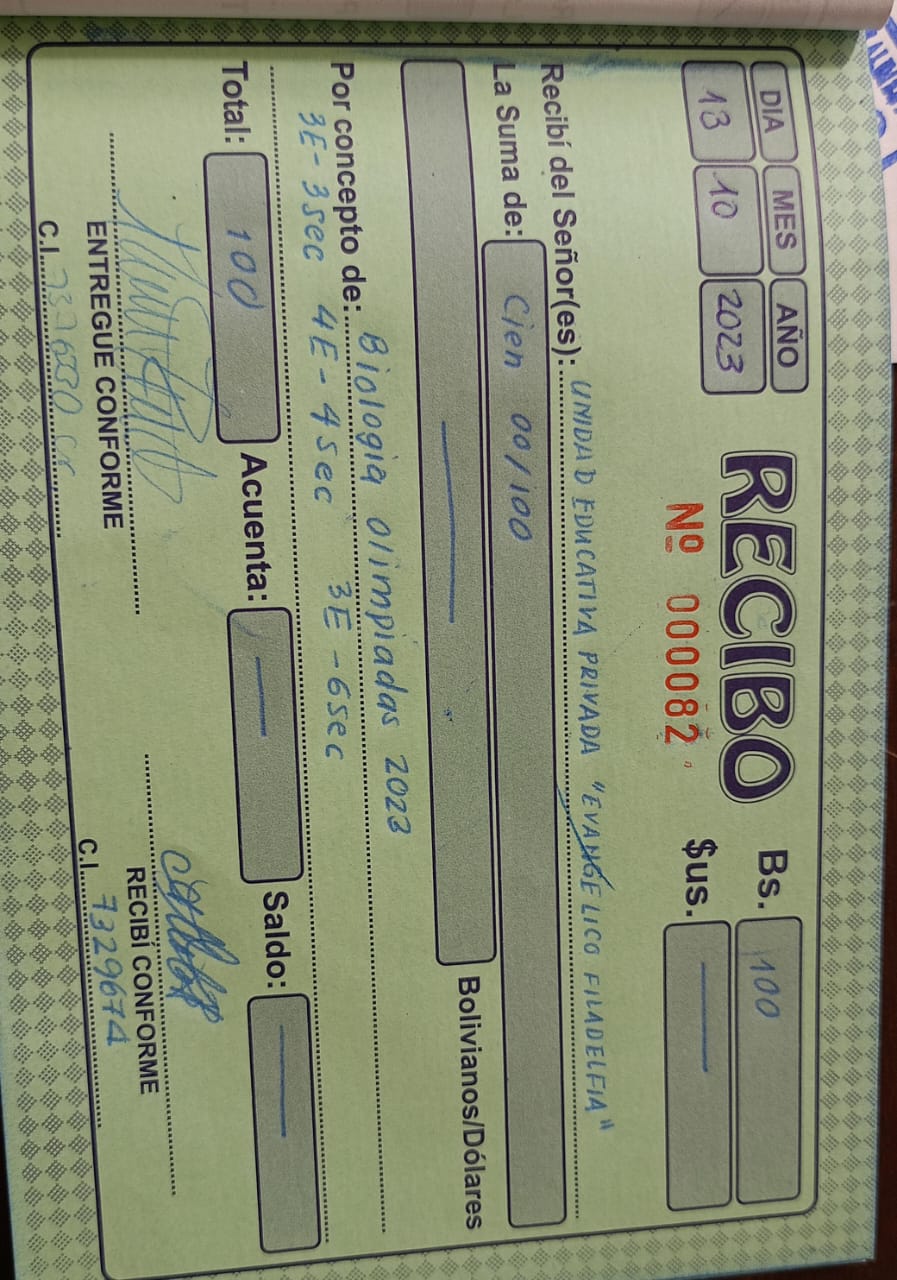 DIA MES AÑO
13 10 2023
RECIBO
Nº 000082
Bs. 100
$us.
Recibí del Señor(es): UNIDAD EDUCATIVA PRIVADA "EVANGELICO FILADELFIA"
La Suma de: Cien 00/100
Bolivianos/Dólares
Por concepto de: Biologia Olimpiadas 2023
3E-3sec 4E-4sec 3E-6sec
Total: 100 Acuenta: Saldo:
ENTREGUE CONFORME RECIBÍ CONFORME
C.I. C.I. 7329674